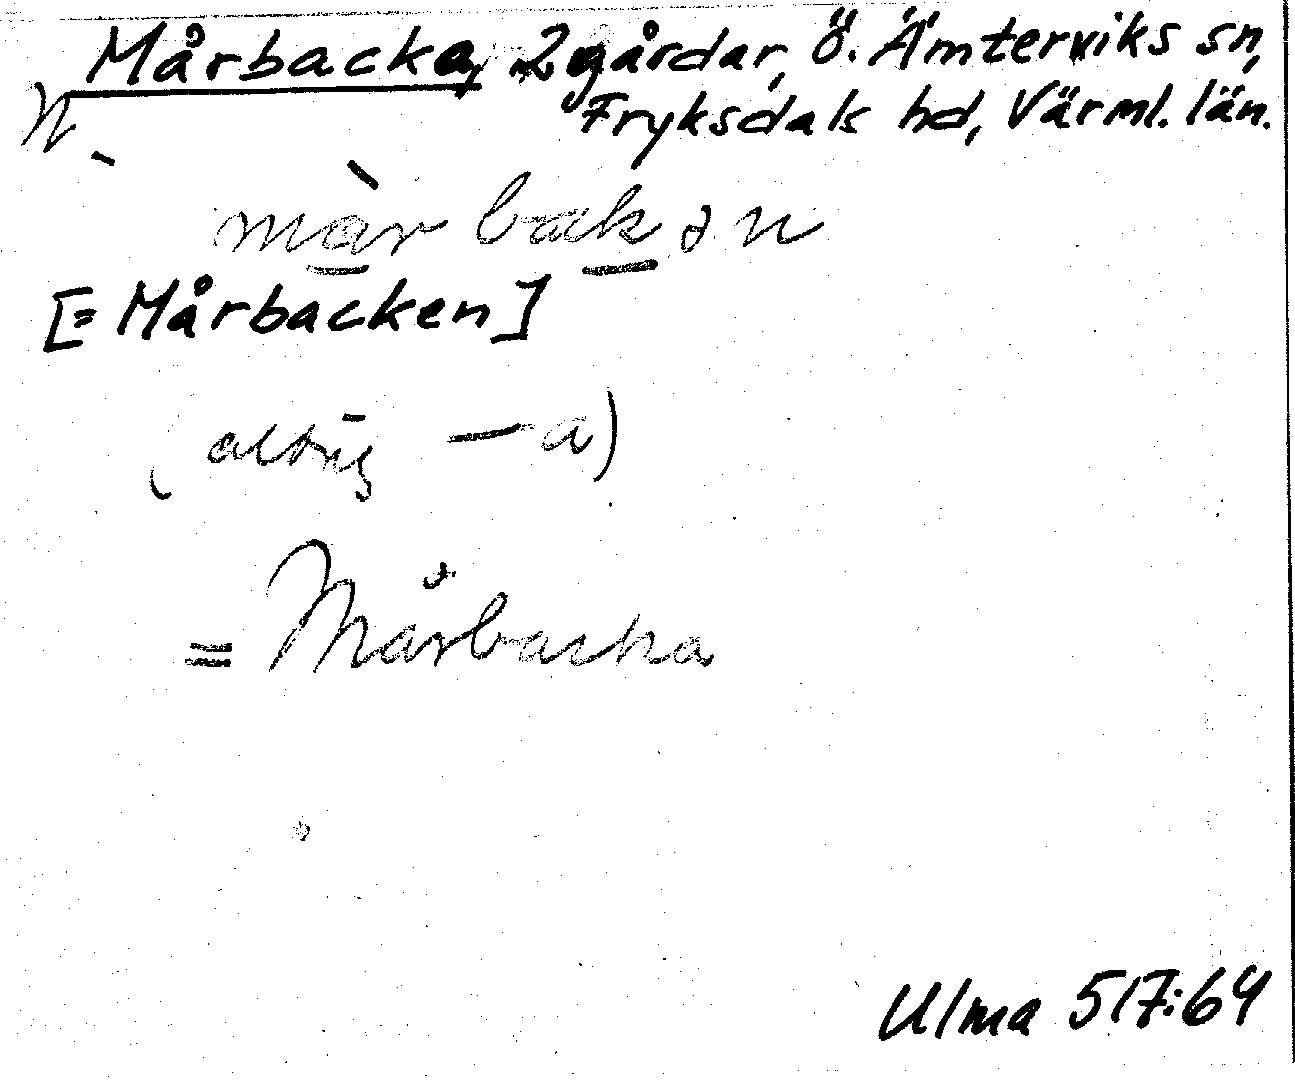 Mårbacka, 2 gårdar, Ö. Ämterviks sn,
Fryksdals hd, Värml. län.
màrbakən
[= Mårbacken]
(aldrig — a)
= Mårbacka
Ulma 517:64